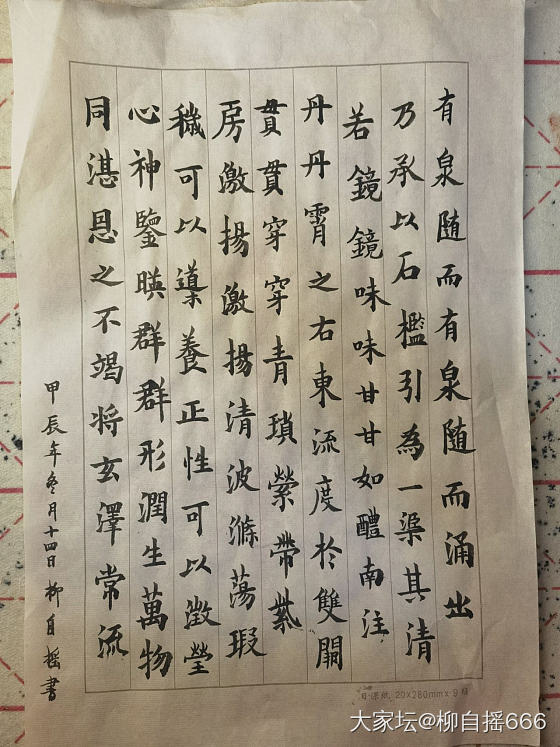 有泉随而有泉随而涌出
乃承以石檻引為一渠其清
若鏡鏡味味甘甘如醴南注
丹丹霄之右東流度於雙闕
貫貫穿穿青瑣縈帶紫
房激揚激揚清波滌蕩瑕
穢可以導養正性可以澂瑩
心神鑒暎群群形潤生萬物
同湛恩之不竭将玄澤常流
甲辰年冬月十四日柳自摇書
20×280mm×9
大家坛@柳自摇666